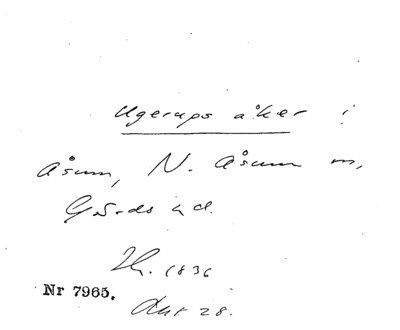 Ugerups åker i
Åsum, N. Åsum sn,
Gärds hd.
Th. 1836
Nr 7965.
Akt 28.